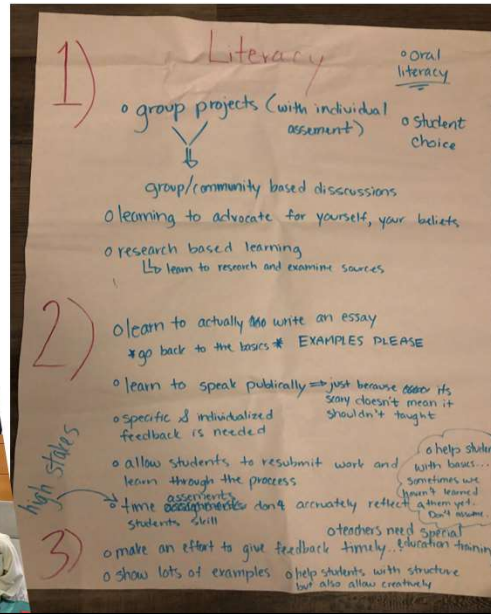 1)
Literacy
o oral
literacy
o group projects (with individual
assement)
o student
choice
group/community based disscussions
o learning to advocate for yourself, your beliefs
o research based learning
learn to research and examine sources
2)
o learn to actually write an essay
*go back to the basics* EXAMPLES PLEASE
o learn to speak publically ⇒ just because its
scary doesn't mean it
shouldn't taught
o specific & individualized
feedback is needed
o allow students to resubmit work and
learn through the process
o help studen
with basics...
sometimes we
haven't learned
them yet.
Don't assume.
high stakes
assements
o time don't accruately reflect a
students skill
3)
o teachers need special
education training
o make an effort to give feedback timely...
o show lots of examples
o help students with structure
but also allow creatively